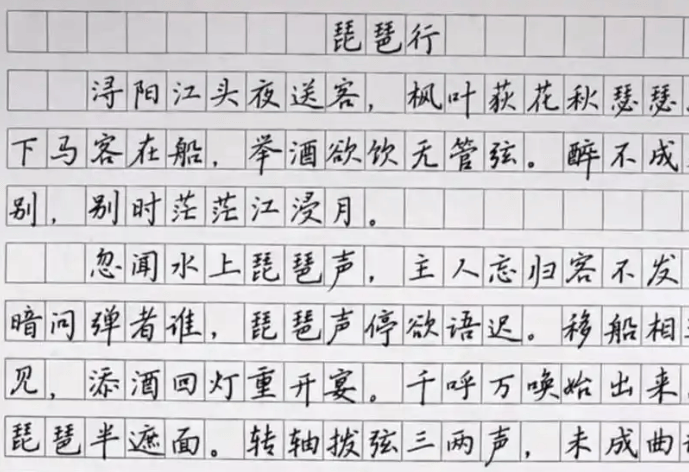 琵琶行
浔阳江头夜送客，枫叶荻花秋瑟瑟
下马客在船，举酒欲饮无管弦。醉不成
别，别时茫茫江浸月。
忽闻水上琵琶声，主人忘归客不发
暗问弹者谁，琵琶声停欲语迟。移船相
见，添酒回灯重开宴。千呼万唤始出来
琵琶半遮面。转轴拨弦三两声，未成曲